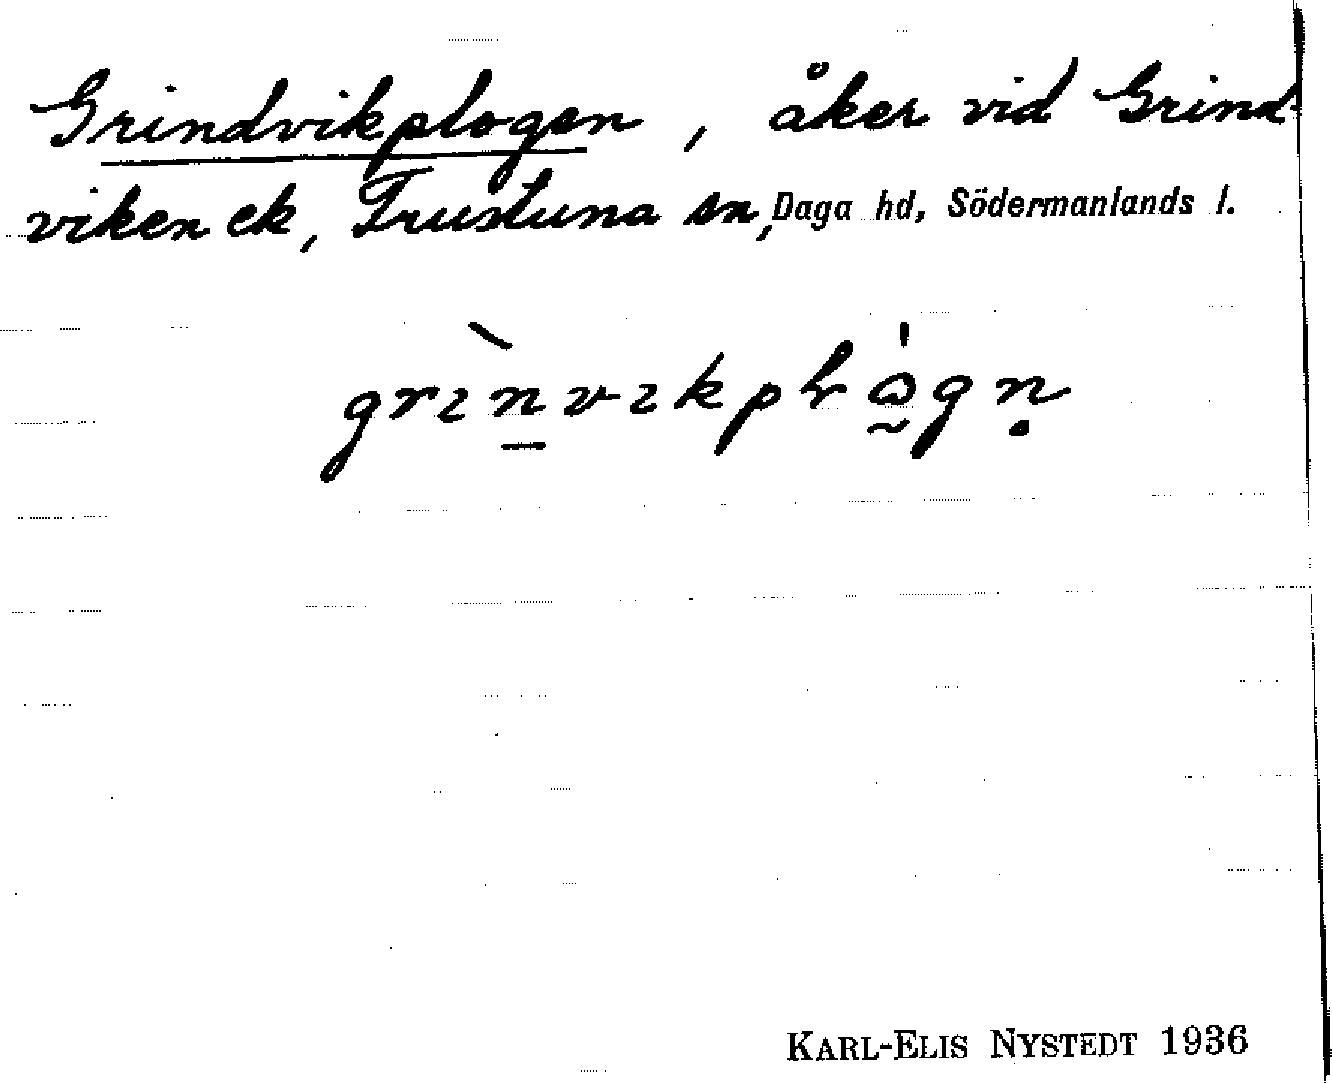 Grindvikplogen, åker vid Grind-
viken ek, Frustuna sn, Daga hd, Södermanlands l.
KARL-ELIS NYSTEDT 1936